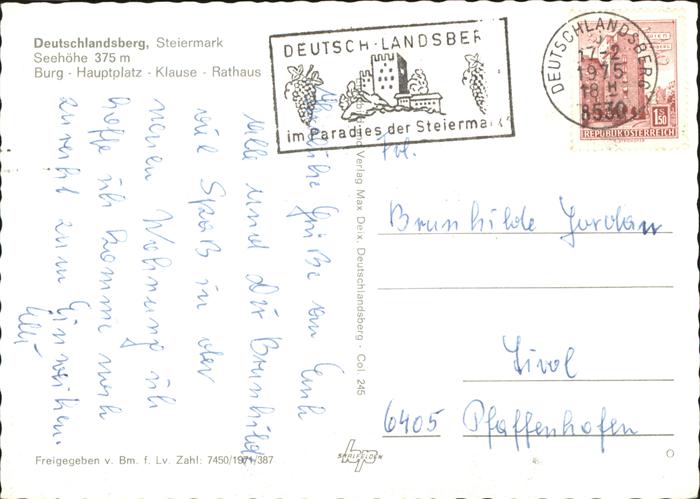 Deutschlandsberg, Steiermark
Seehöhe 375 m
Burg - Hauptplatz - Klause - Rathaus
DEUTSCH-LANDSBER
im Paradies der Steiermark
DEUTSCHLANDSBERG
17-2
1975
18 H
8530
1S50
REPUBLIK ÖSTERREICH
Herzliche Grüße an Euch
alle und Dir Brunhilde
viel Spaß in der
neuen Wohnung ich
hoffe ich komme noch
zurecht zum Einweihen.
Elli
und Verlag Max Deix, Deutschlandsberg - Col. 245
Frl.
Brunhilde Jordan
Tirol
6405 Pfaffenhofen
Freigegeben v. Bm. f. Lv. Zahl: 7450/1971/387